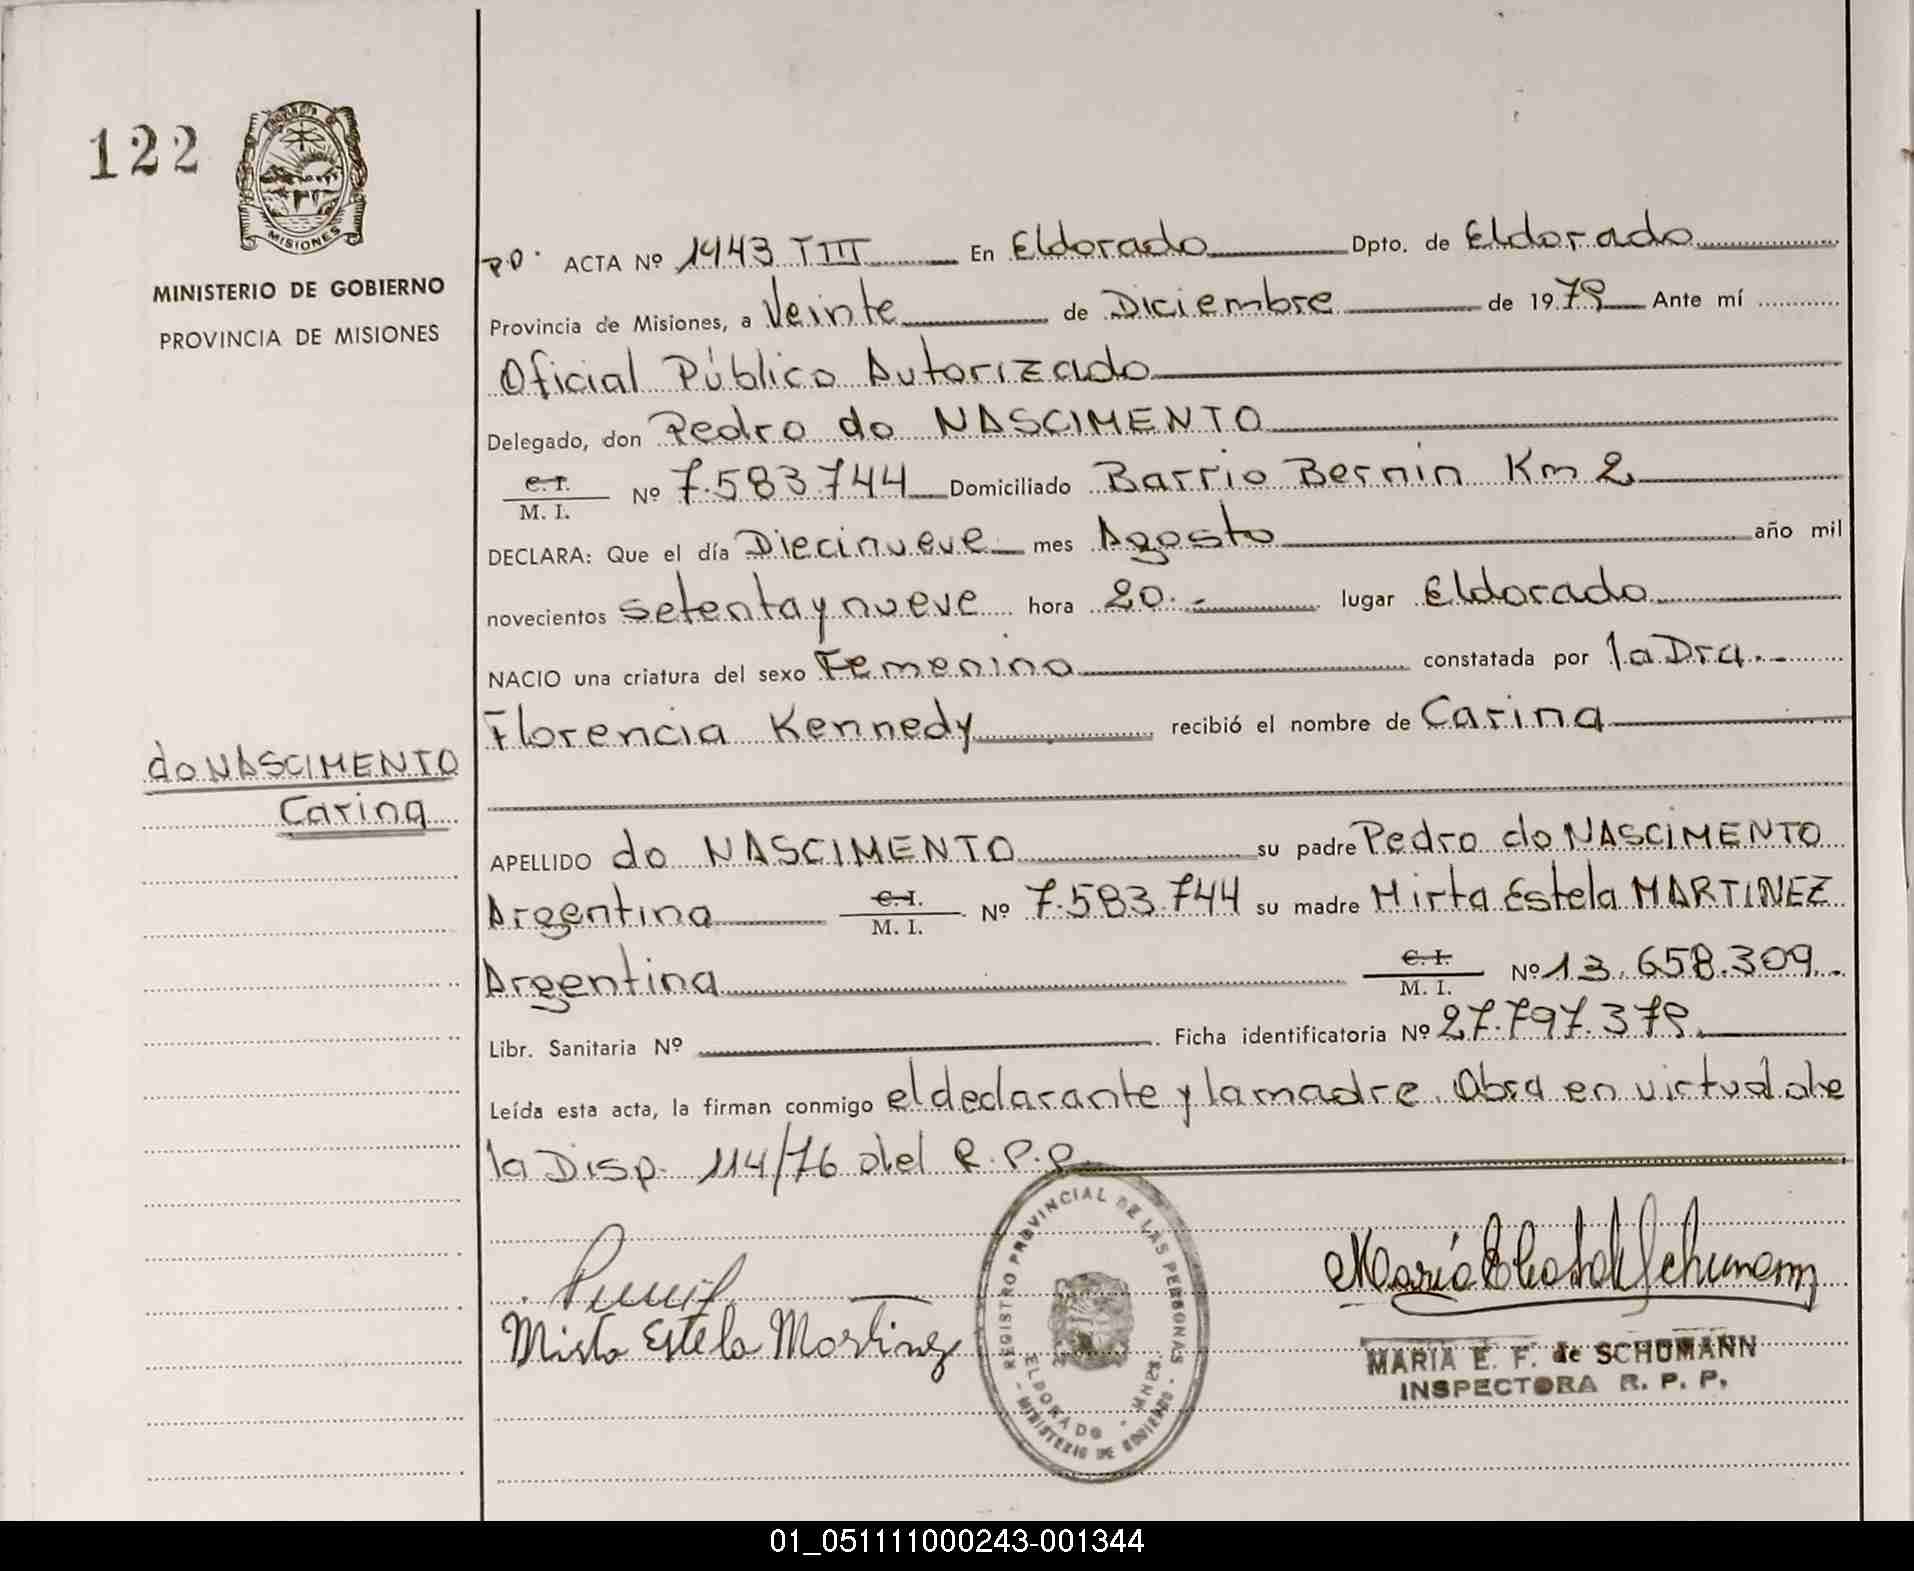 122
MISIONES
MINISTERIO DE GOBIERNO
PROVINCIA DE MISIONES
P.D. ACTA Nº 1443 TIII En Eldorado Dpto. de Eldorado
Provincia de Misiones, a Veinte de Diciembre de 1979 Ante mí
Oficial Público Autorizado
Delegado, don Pedro do NASCIMENTO
C.I.
M. I. Nº 7.583.744 Domiciliado Barrio Bernin Km 2
DECLARA: Que el día Diecinueve mes Agosto año mil
novecientos setenta y nueve hora 20.- lugar Eldorado
NACIO una criatura del sexo Femenino constatada por la Dra.-
Florencia Kennedy recibió el nombre de Carina
do NASCIMENTO
Carina
APELLIDO do NASCIMENTO su padre Pedro do NASCIMENTO
Argentina C.I. M. I. Nº 7.583.744 su madre Mirta Estela MARTINEZ
Argentina C.I. M. I. Nº 13.658.309.
Libr. Sanitaria Nº Ficha identificatoria Nº 27.797.379.
Leída esta acta, la firman conmigo el declarante y la madre. Obra en virtud de
la Disp. 114/76 del R.P.P.
REGISTRO PROVINCIAL DE LAS PERSONAS
ELDORADO - MNES.
- MINISTERIO DE GOBIERNO -
Mirta Estela Martinez
MARIA E. F. de SCHUMANN
INSPECTORA R. P. P.
01_051111000243-001344